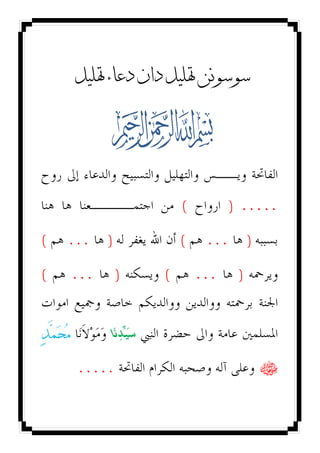 سوسونن تهليل دان دعاء تهليل
بسم الله الرحمن الرحيم
الفاتحة ويـــــس والتهليل والتسبيح والدعاء إلى روح
..... ( ارواح ) من اجتمـــــــــعنا ها هنا
بسببه ( ها ... هم ) أن الله يغفر له ( ها ... هم )
ويرحمه ( ها ... هم ) ويسكنه ( ها ... هم )
الجنة برحمته ووالدين ووالديكم خاصة وجميع اموات
المسلمين عامة والى حضرة النبي سَيِّدِنَا وَمَوْلَانَا مُحَمَّدٍ
ﷺ وعلى آله وصحبه الكرام الفاتحة .....